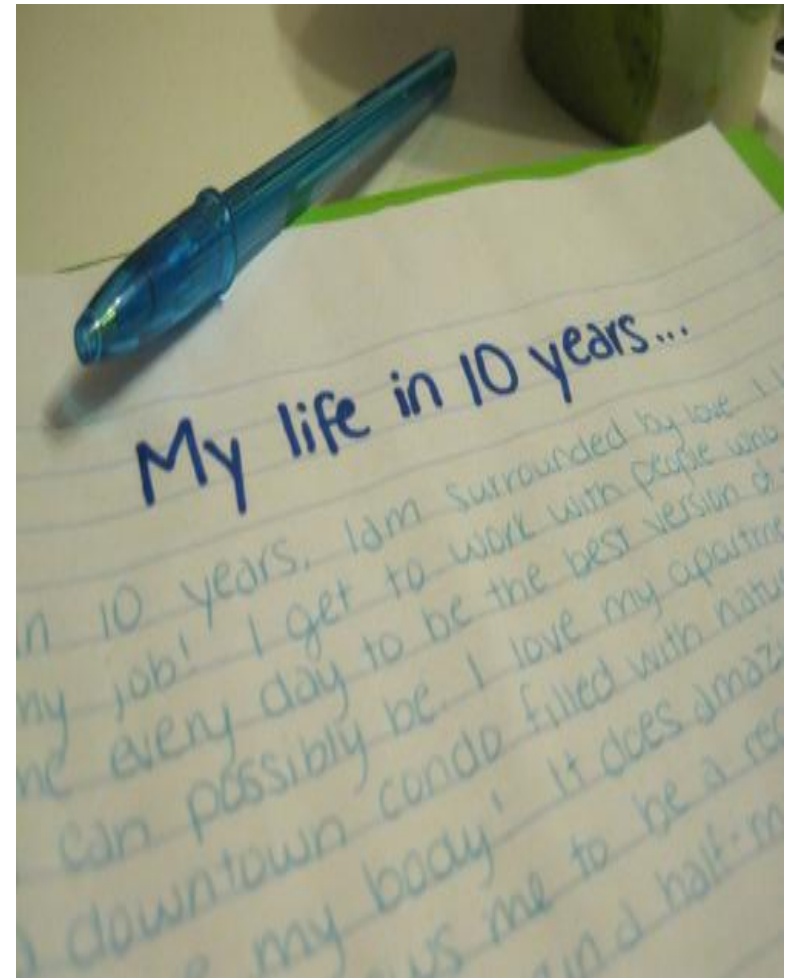 My life in 10 years...
in 10 years, I am surrounded by love. I
my job! I get to work with people who
me every day to be the best version of
can possibly be. I love my apartme
downtown condo filled with natu
my body! It does amazi
me to be a rec
a half-m